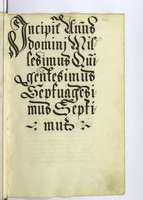 Incipit Annus
domini Mil
lesimus Qui
gentesimus
Septuagesi
mus Septi
mus